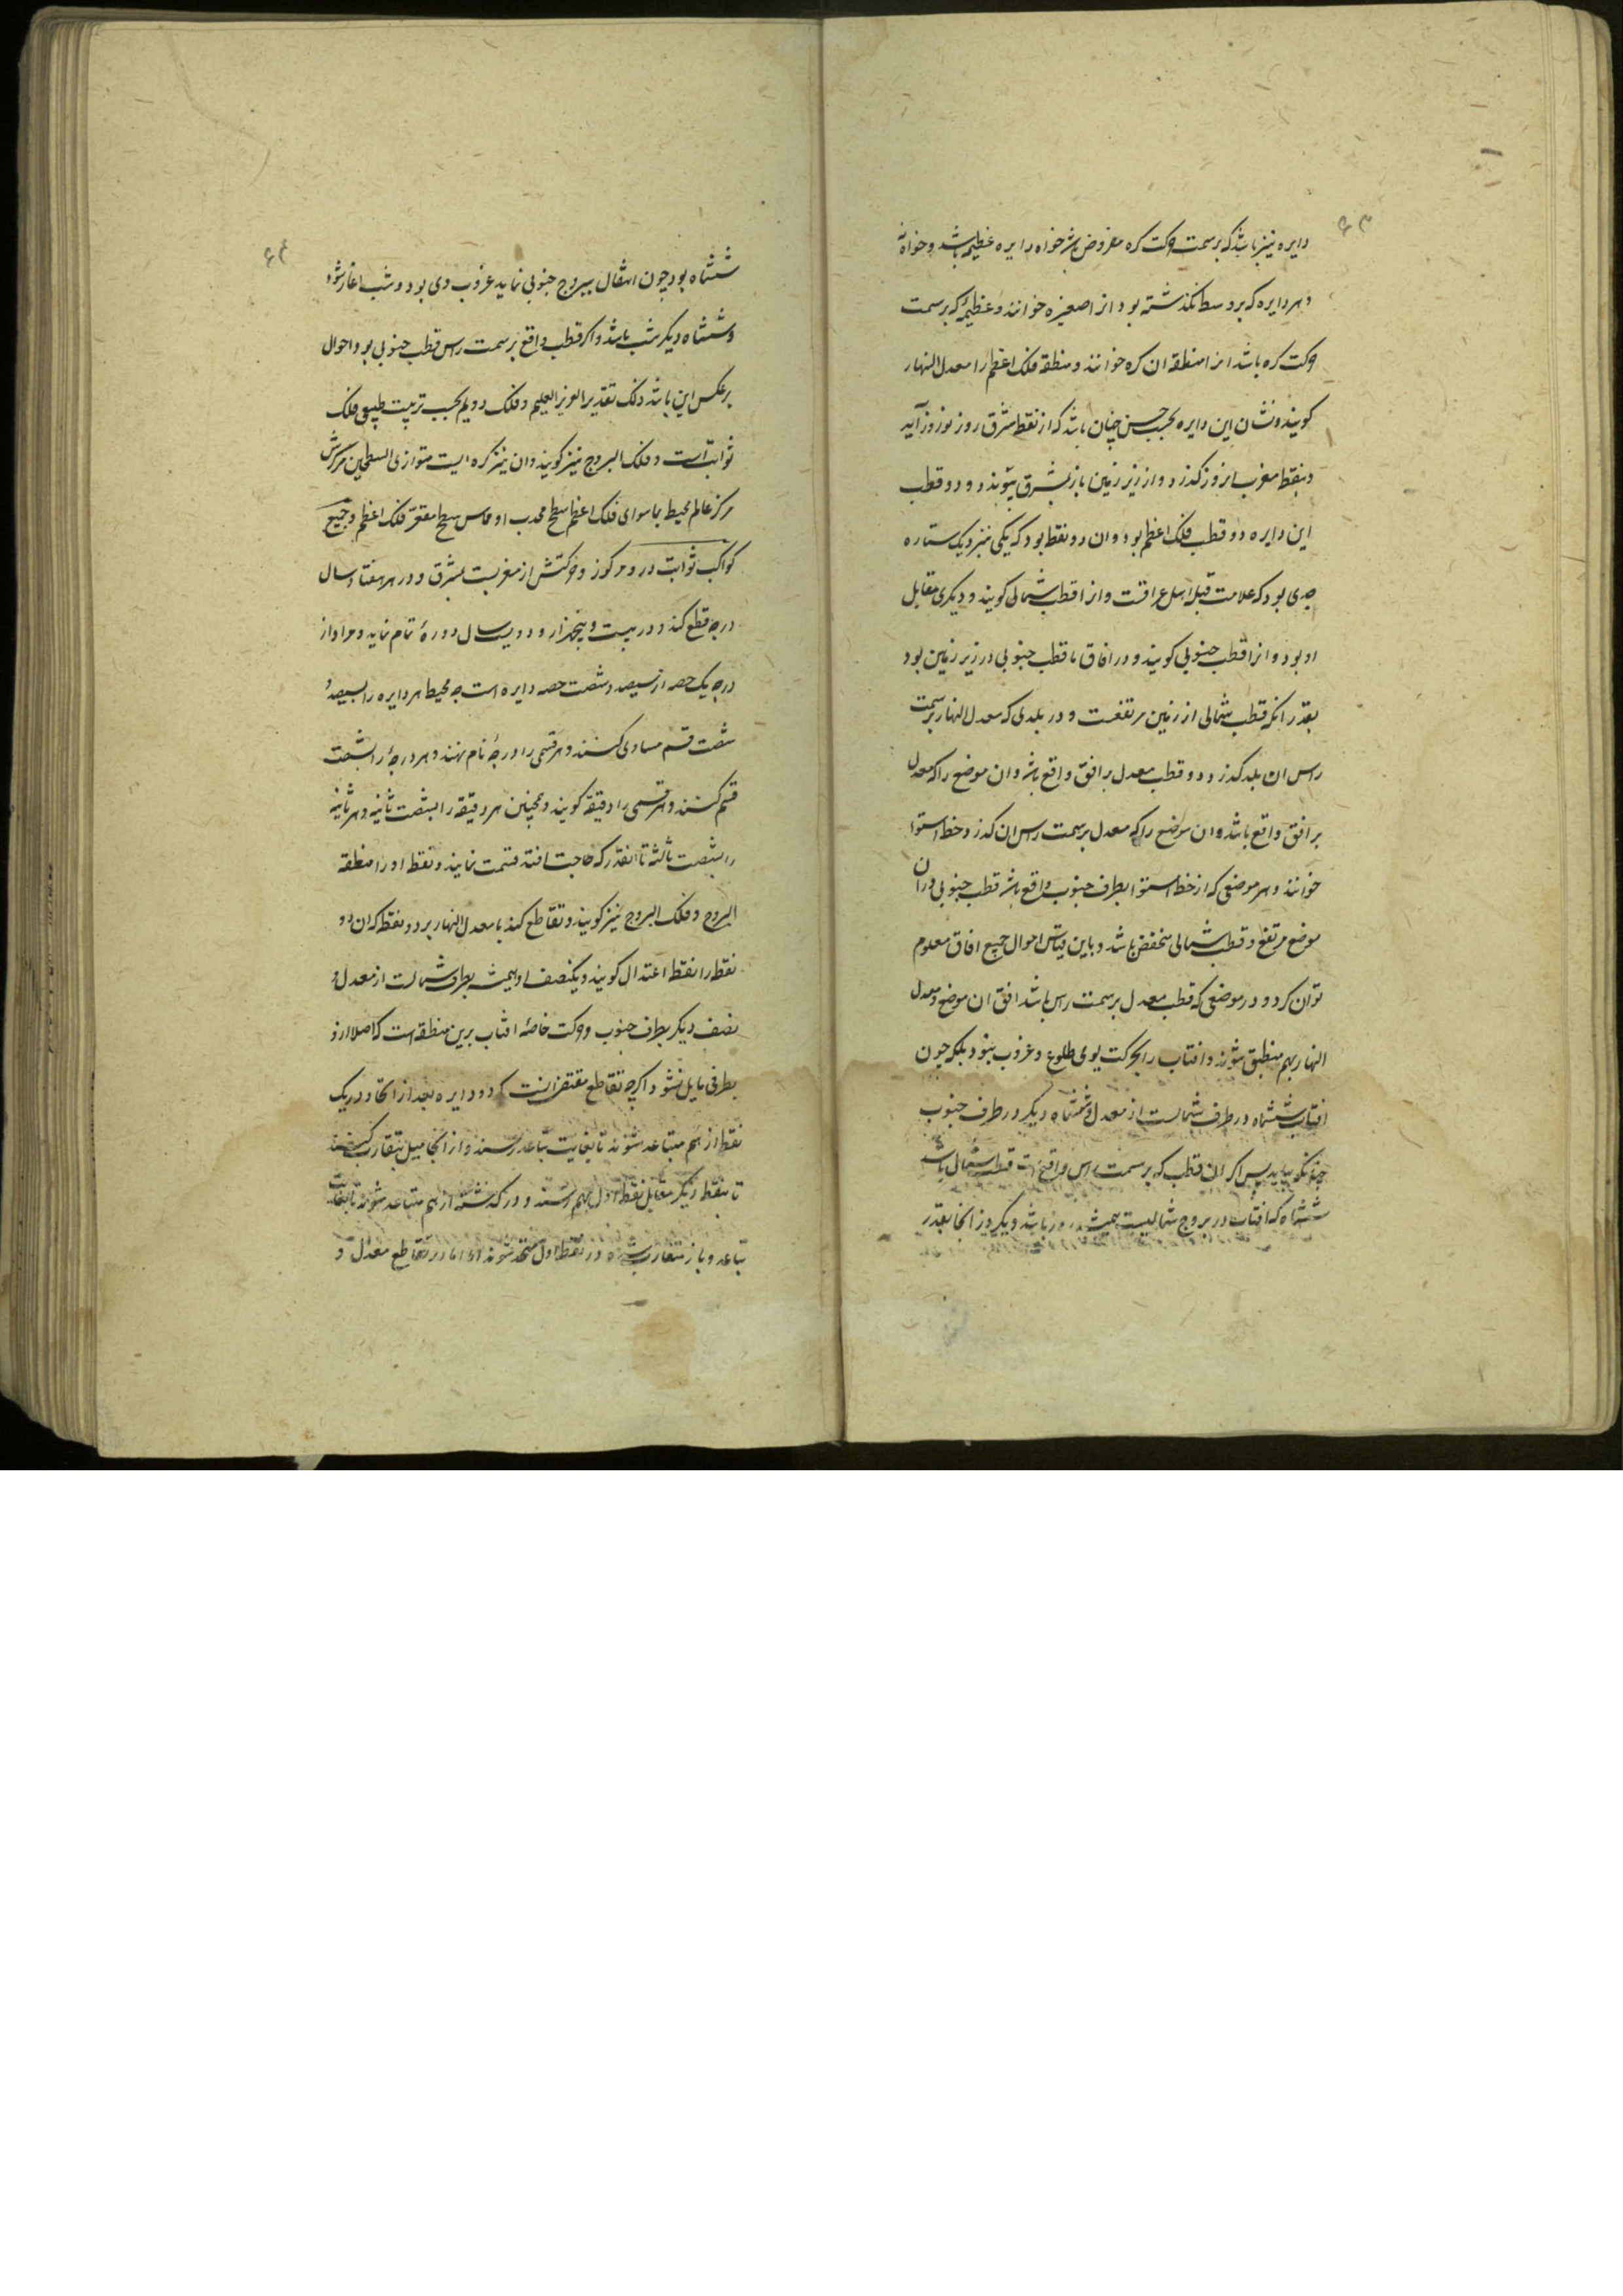 ۶۳
دایره نیز باشد که بر سمت حرکت کره مفروض باشد خواه دایره عظیمه باشد و خواه نه
و هر دایره که بر وسط نکذشته بود انرا صغیره خوانند و عظیمۀ که بر سمت
حرکت کره باشد انرا منطقه ان کره خوانند و منطقه فلک اعظم را معدل النهار
کویند و نشان این دایره بحسب حس چنان باشد که از نقطه مشرق روز نوروز آید
و بنقطه مغرب انروز کذرد و از زیر زمین باز بمشرق پیوندد و دو قطب
این دایره دو قطب فلک اعظم بود و ان دو نقطه بود که یکی نزدیک ستاره
جدی بود که علامت قبله اهل عراقست و انرا قطب شمالی کویند و دیکری مقابل
او بود و انرا قطب جنوبی کویند و در افاق ما قطب جنوبی در زیر زمین بود
بقدر انکه قطب شمالی از زمین مرتفعست و در بلدی که معدل النهار بر سمت
راس ان بلد کذرد دو قطب معدل بر افق واقع باشد و ان موضع را که معدل
بر افق واقع باشد و ان موضع را که معدل بر سمت راس ان کذرد خط استوا
خوانند و هر موضعی که از خط استوا بطرف جنوب واقع باشد قطب جنوبی در ان
موضع مرتفع و قطب شمالی منخفض باشد و باین قیاس احوال جمیع افاق معلوم
توان کرد و در موضعی که قطب معدل بر سمت راس باشد افق ان موضع و معدل
النهار بهم منطبق شوند و افتاب را بحرکت یومی طلوع و غروب نبود بلکه چون
افتاب ششماه در طرف شمالست از معدل و ششماه دیکر در طرف جنوب
چنانکه بیاید پس اکر ان قطب که بر سمت راس واقع است قطب شمالی باشد
ششماه که افتاب در بروج شمالیست همیشه روز باشد و یکروز انجا بقدر
۶۴
ششماه بود چون انتقال ببروج جنوبی نماید غروب وی بود و شب اغاز شود
و ششماه دیکر شب باشد و اکر قطب واقع بر سمت راس قطب جنوبی بود احوال
بر عکس این باشد ذلک تقدیر العزیز العلیم و فلک دویم بحسب ترتیب طبیعی فلک
ثوابت است و فلک البروج نیز کویند و ان نیز کره ایست متوازی السطحین مرکزش
مرکز عالم محیط بما سوای فلک اعظم سطح محدب او مماس سطح مقعر فلک اعظم و جمیع
کواکب ثوابت در و مرکوز و حرکتش از مغربست بمشرق و در هر هفتاد سال
درجه قطع کند و در بیست و پنجهزار و دویست سال دورۀ تمام نماید و مراد از
درجه یک حصه از سیصد و شصت حصه دایره است چه محیط هر دایره را بسیصد و
شصت قسم مساوی کنند و هر قسمی را درجۀ نام نهند و هر درجۀ را بشصت
قسم کنند و هر قسمی را دقیقه کویند و همچنین هر دقیقه را بشصت ثانیه و هر ثانیه
را بشصت ثالثه تا انقدر که حاجت افتد قسمت نمایند و نقطه او را منطقه
البروج و فلک البروج نیز کویند و تقاطع کند با معدل النهار بر دو نقطه که ان دو
نقطه را نقطه اعتدال کویند و یکنصف او همیشه بطرف شمالست از معدل و
نصف دیکر بطرف جنوب و حرکت خاصۀ افتاب برین منطقه است که اصلا ازو
بطرفی مایل نشود اکرچه تقاطع مقتضی انست که دو دایره بعد از اتحاد در یک
نقطه از هم متباعد شوند تا بغایت تباعد رسند و از انجا میل بتقارب کنند
تا بنقطه دیکر مقابل نقطه اول بهم رسند و در کذشته از هم متباعد شوند تا بغایت
تباعد و باز متقارب شده در نقطه اول متحد شوند اما در تقاطع معدل و